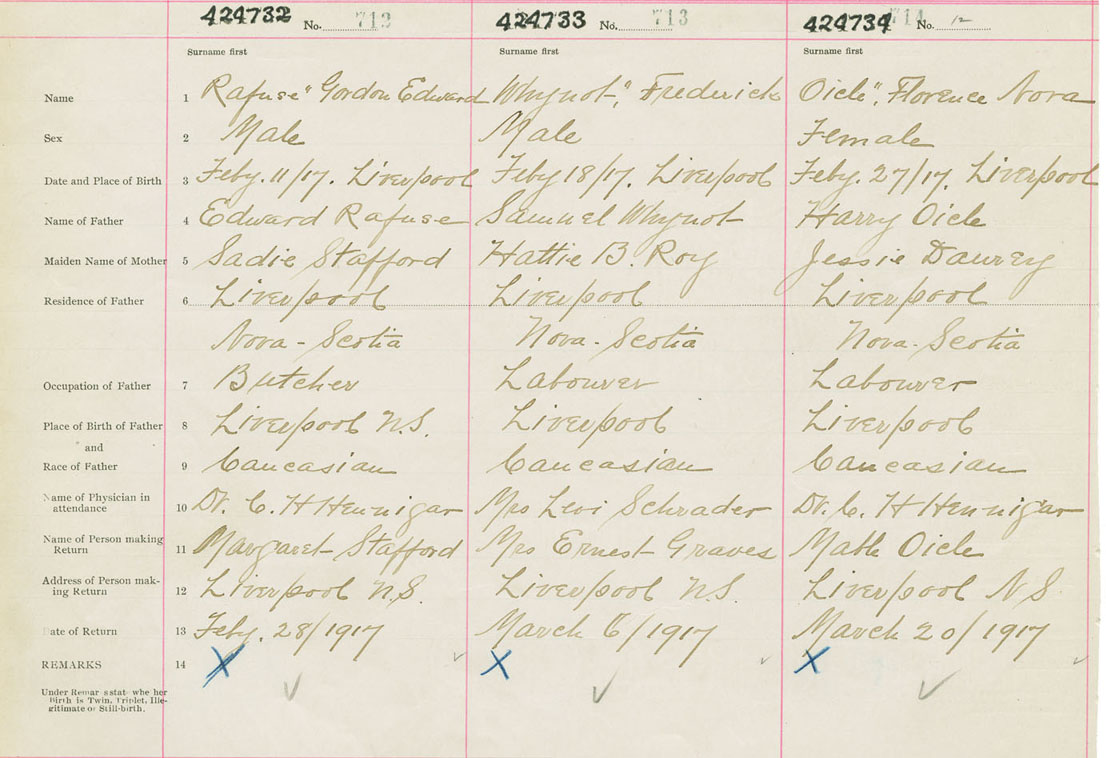 424732 No. 712 424733 No. 713 424734 714 No. 12
Surname first Surname first Surname first
Name 1 Rafuse" Gordon Edward Whynot", Frederick Oicle", Florence Nora
Sex 2 Male Male Female
Date and Place of Birth 3 Feby. 11/17. Liverpool Feby 18/17. Liverpool Feby. 27/17. Liverpool
Name of Father 4 Edward Rafuse Samuel Whynot Harry Oicle
Maiden Name of Mother 5 Sadie Stafford Hattie B. Roy Jessie Daurey
Residence of Father 6 Liverpool Liverpool Liverpool
Nova-Scotia Nova-Scotia Nova-Scotia
Occupation of Father 7 Butcher Labourer Labourer
Place of Birth of Father 8 Liverpool N.S. Liverpool Liverpool
and
Race of Father 9 Caucasian Caucasian Caucasian
Name of Physician in
attendance 10 Dr. C. H Hennigar Mrs Levi Schrader Dr. C. H Hennigar
Name of Person making
Return 11 Margaret Stafford Mrs Ernest Graves Oicle
Address of Person mak-
ing Return 12 Liverpool N.S. Liverpool N.S. Liverpool N S
Date of Return 13 Feby. 28/1917 March 6/1917 March 20/1917
REMARKS 14 X X X
Under Remar s stat whe her
Birth is Twin, Triplet, Ille-
gitimate or Still-birth.